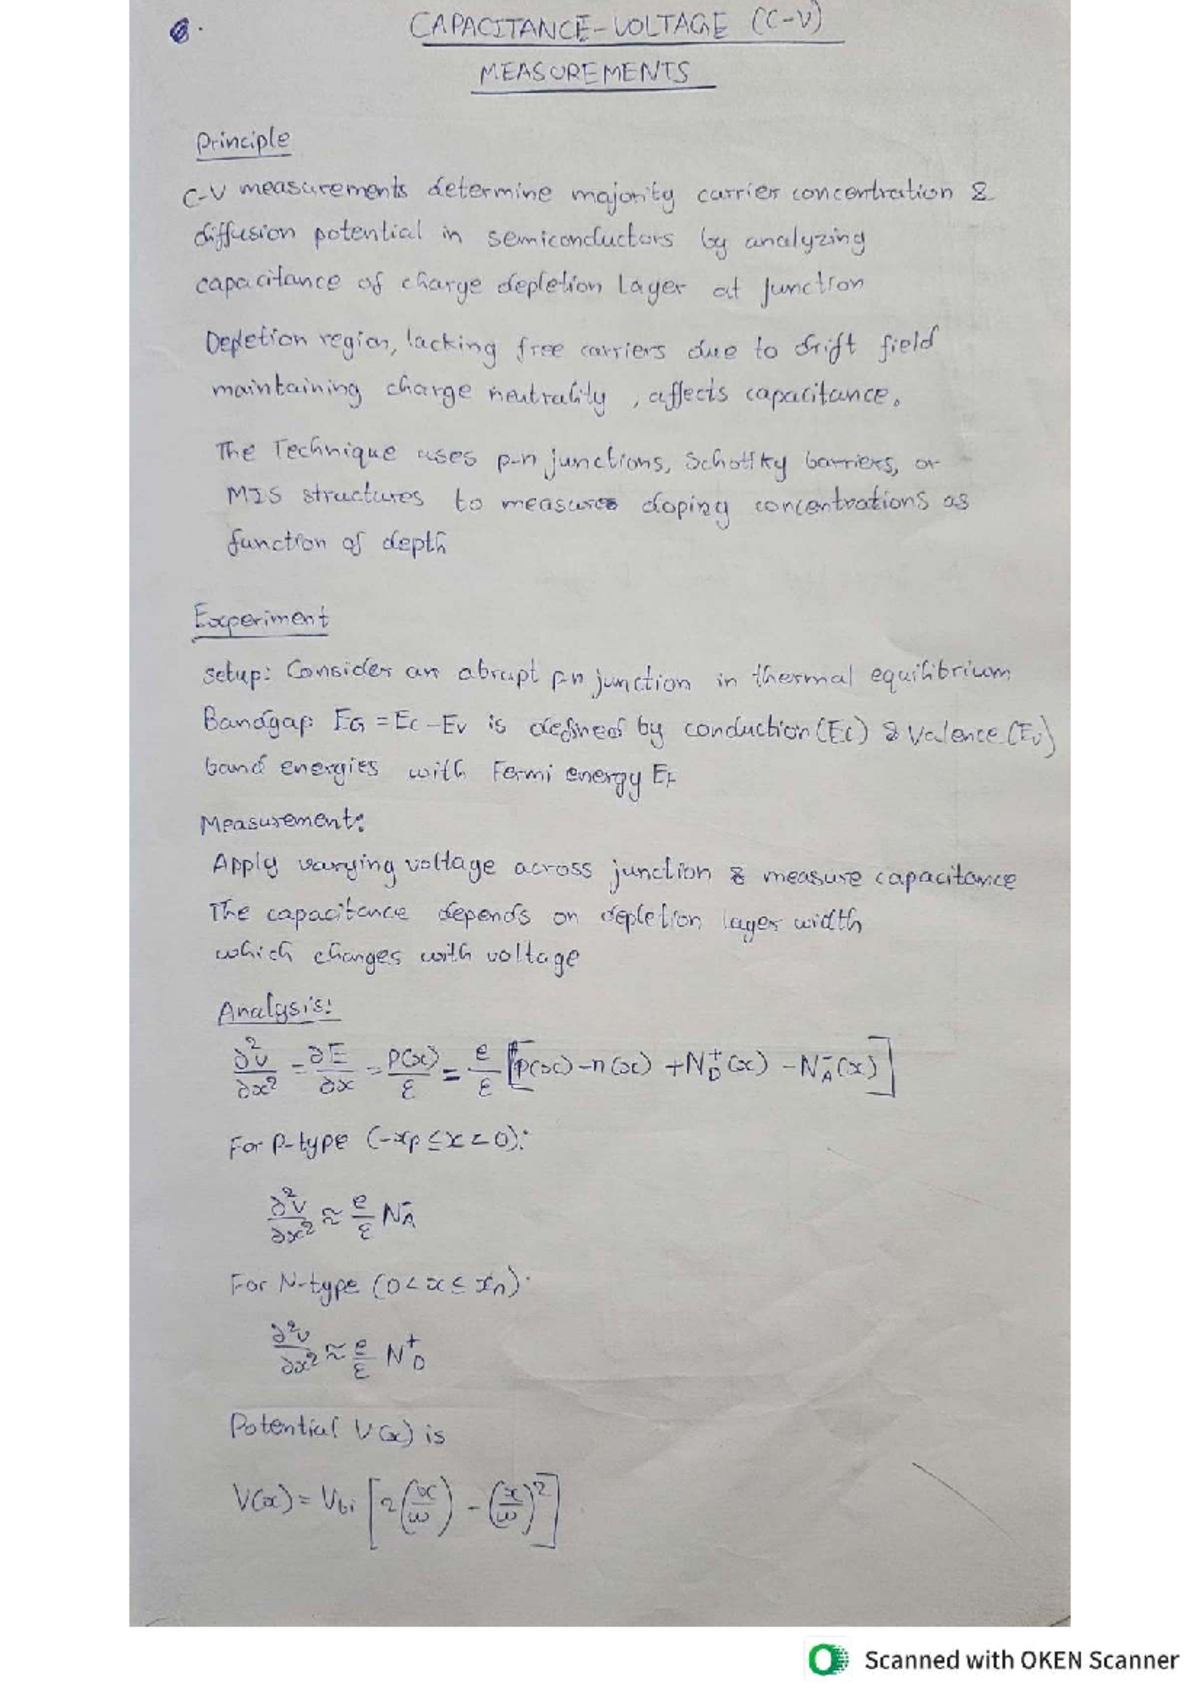 CAPACITANCE-VOLTAGE (C-V)
MEASUREMENTS
Principle
C-V measurements determine majority carrier concentration &
diffusion potential in semiconductors by analyzing
capacitance of charge depletion layer at junction
Depletion region, lacking free carriers due to drift field
maintaining charge neutrality, affects capacitance.
The Technique uses p-n junctions, Schottky barriers, or
MIS structures to measures doping concentrations as
function of depth
Experiment
setup: Consider an abrupt pn junction in thermal equilibrium
Bandgap EG = Ec - Ev is defined by conduction (Ec) & valence (Ev)
band energies with Fermi energy EF
Measurement:
Apply varying voltage across junction & measure capacitance
The capacitance depends on depletion layer width
which changes with voltage
Analysis:
∂²v/∂x² = ∂E/∂x = P(x)/ε = e/ε [p(x) - n(x) + N_D⁺(x) - N_A⁻(x)]
For P-type (-xp ≤ x < 0):
∂²v/∂x² ≈ e/ε N_A⁻
For N-type (0 < x ≤ xn).
∂²v/∂x² ≈ e/ε N_D⁺
Potential V(x) is
V(x) = Vbi [2(x/w) - (x/w)²]
Scanned with OKEN Scanner